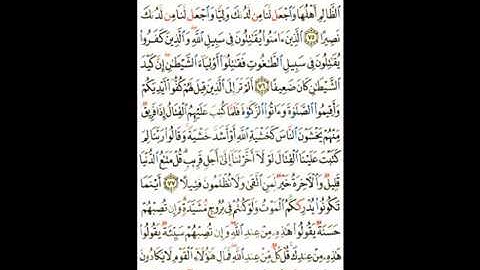 ٱلظَّالِمِ أَهْلُهَا وَٱجْعَل لَّنَا مِن لَّدُنكَ وَلِيًّا وَٱجْعَل لَّنَا مِن لَّدُنكَ
نَصِيرًا ٧٥ ٱلَّذِينَ ءَامَنُوا۟ يُقَٰتِلُونَ فِى سَبِيلِ ٱللَّهِ وَٱلَّذِينَ كَفَرُوا۟
يُقَٰتِلُونَ فِى سَبِيلِ ٱلطَّٰغُوتِ فَقَٰتِلُوٓا۟ أَوْلِيَآءَ ٱلشَّيْطَٰنِ إِنَّ كَيْدَ
ٱلشَّيْطَٰنِ كَانَ ضَعِيفًا ٧٦ أَلَمْ تَرَ إِلَى ٱلَّذِينَ قِيلَ لَهُمْ كُفُّوٓا۟ أَيْدِيَكُمْ
وَأَقِيمُوا۟ ٱلصَّلَوٰةَ وَءَاتُوا۟ ٱلزَّكَوٰةَ فَلَمَّا كُتِبَ عَلَيْهِمُ ٱلْقِتَالُ إِذَا فَرِيقٌ
مِّنْهُمْ يَخْشَوْنَ ٱلنَّاسَ كَخَشْيَةِ ٱللَّهِ أَوْ أَشَدَّ خَشْيَةً وَقَالُوا۟ رَبَّنَا لِمَ
كَتَبْتَ عَلَيْنَا ٱلْقِتَالَ لَوْلَآ أَخَّرْتَنَآ إِلَىٰٓ أَجَلٍ قَرِيبٍ قُلْ مَتَٰعُ ٱلدُّنْيَا
قَلِيلٌ وَٱلْءَاخِرَةُ خَيْرٌ لِّمَنِ ٱتَّقَىٰ وَلَا تُظْلَمُونَ فَتِيلًا ٧٧ أَيْنَمَا
تَكُونُوا۟ يُدْرِككُّمُ ٱلْمَوْتُ وَلَوْ كُنتُمْ فِى بُرُوجٍ مُّشَيَّدَةٍ وَإِن تُصِبْهُمْ
حَسَنَةٌ يَقُولُوا۟ هَٰذِهِۦ مِنْ عِندِ ٱللَّهِ وَإِن تُصِبْهُمْ سَيِّئَةٌ يَقُولُوا۟
هَٰذِهِۦ مِنْ عِندِكَ قُلْ كُلٌّ مِّنْ عِندِ ٱللَّهِ فَمَالِ هَٰٓؤُلَآءِ ٱلْقَوْمِ لَا يَكَادُونَ